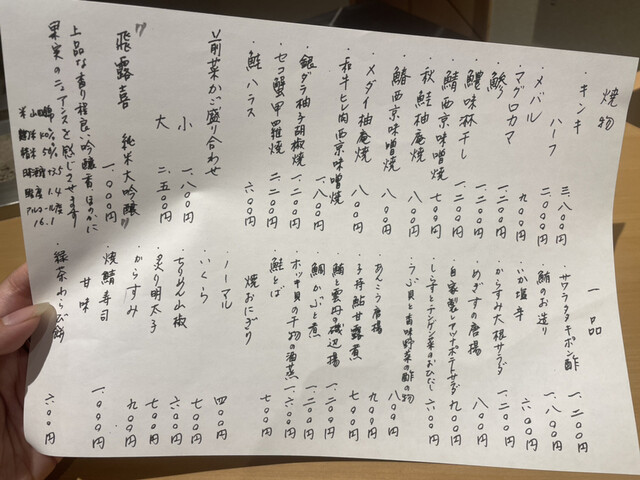 焼物
・キンキ 三、八〇〇円
ハーフ 二、〇〇〇円
・メバル 九〇〇円
・マグロカマ 一、二〇〇円
・鯵
・鱧味淋干し 一、二〇〇円
・鯖西京味噌焼 七〇〇円
・秋鮭柚庵焼 八〇〇円
・鰆西京味噌焼 八〇〇円
・メダイ柚庵焼 八〇〇円
・和牛ヒレ肉西京味噌焼 一、八〇〇円
・銀ダラ柚子胡椒焼 一、二〇〇円
・セコ蟹甲羅焼 二、二〇〇円
・鮭ハラス 六〇〇円
前菜かご盛り合わせ
小 一、八〇〇円
大 二、五〇〇円
〝飛露喜 純米大吟醸〟 一、〇〇〇円
上品な香り程良い吟醸香ほのかに
果実のニュアンスを感じさせます
一品
・サワラタタキポン酢 一、二〇〇円
・鮪のお造り 一、八〇〇円
・いか塩辛 六〇〇円
・からすみ大根サラダ 一、二〇〇円
・めぎすの唐揚 八〇〇円
・自家製シーチキンツナポテトサラダ 九〇〇円
・しらす子とチンゲン菜のおひたし 六〇〇円
・つぶ貝と香味野菜の酢の物 八〇〇円
・あんこう唐揚 九〇〇円
・子持鮎甘露煮 七〇〇円
・鮪と雲丹の磯辺揚 一、二〇〇円
・鯛かぶと煮 一、二〇〇円
・ホッキ貝の干物の酒蒸 一、六〇〇円
・鮭とば 七〇〇円
焼おにぎり
・ノーマル 四〇〇円
・いくら 七〇〇円
・ちりめん山椒 六〇〇円
・炙り明太子 七〇〇円
・からすみ 九〇〇円
・焼鯖寿司 一、〇〇〇円
甘味
・緑茶わらび餅 六〇〇円